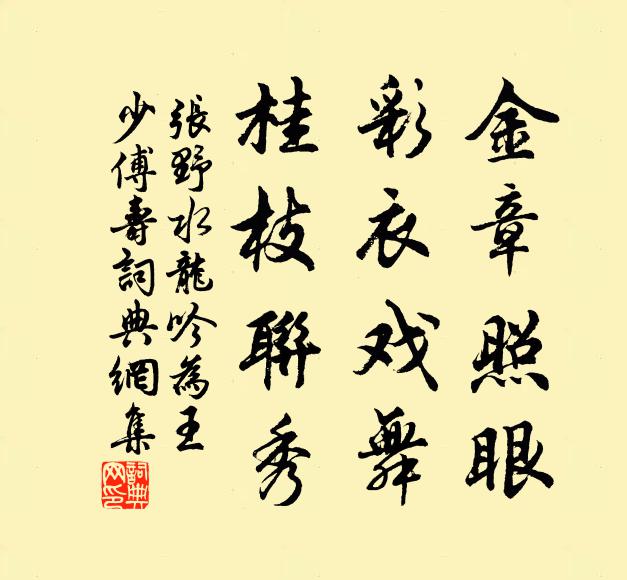 金章照眼
彩衣戏舞
桂枝聯秀
張野水龍吟為王
少傅壽詞典網集